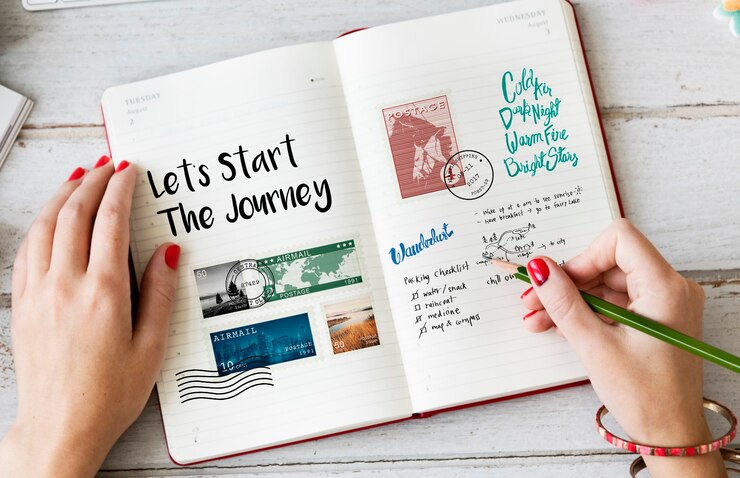 TUESDAY
August
2
Lets Start
The Journey
50
AIRMAIL
POSTAGE
1991
AIRMAIL
POSTAGE
1991
10 CENT
50
WEDNESDAY
August
3
POSTAGE
2017
Cold Air
Dark Night
Warm Fire
Bright Stars
- Wake up at 6 am to see sunrise
- have breakfast → go to fairy lake
Wanderlust
lake
→ to city
chill out
Packing checklist
water/snack
raincoat
medicine
map & compass